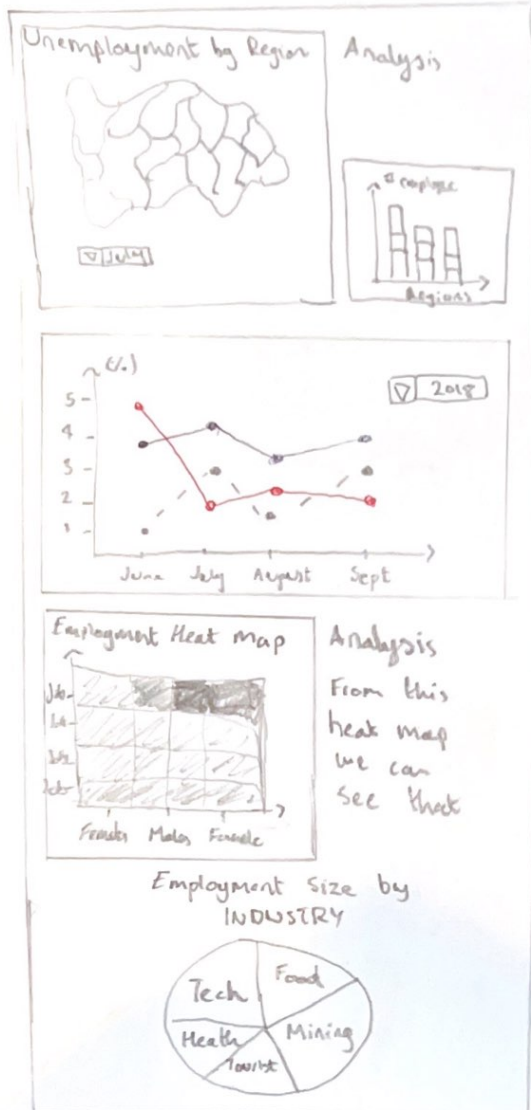 Unemployment by Region
Analysis
July
# employee
Regions
(%)
2018
5
4
3
2
1
June July August Sept
Employment Heat map
Females Males Female
Analysis
From this
heat map
we can
see that
Employment size by
INDUSTRY
Tech
Food
Heath
Mining
Tourist